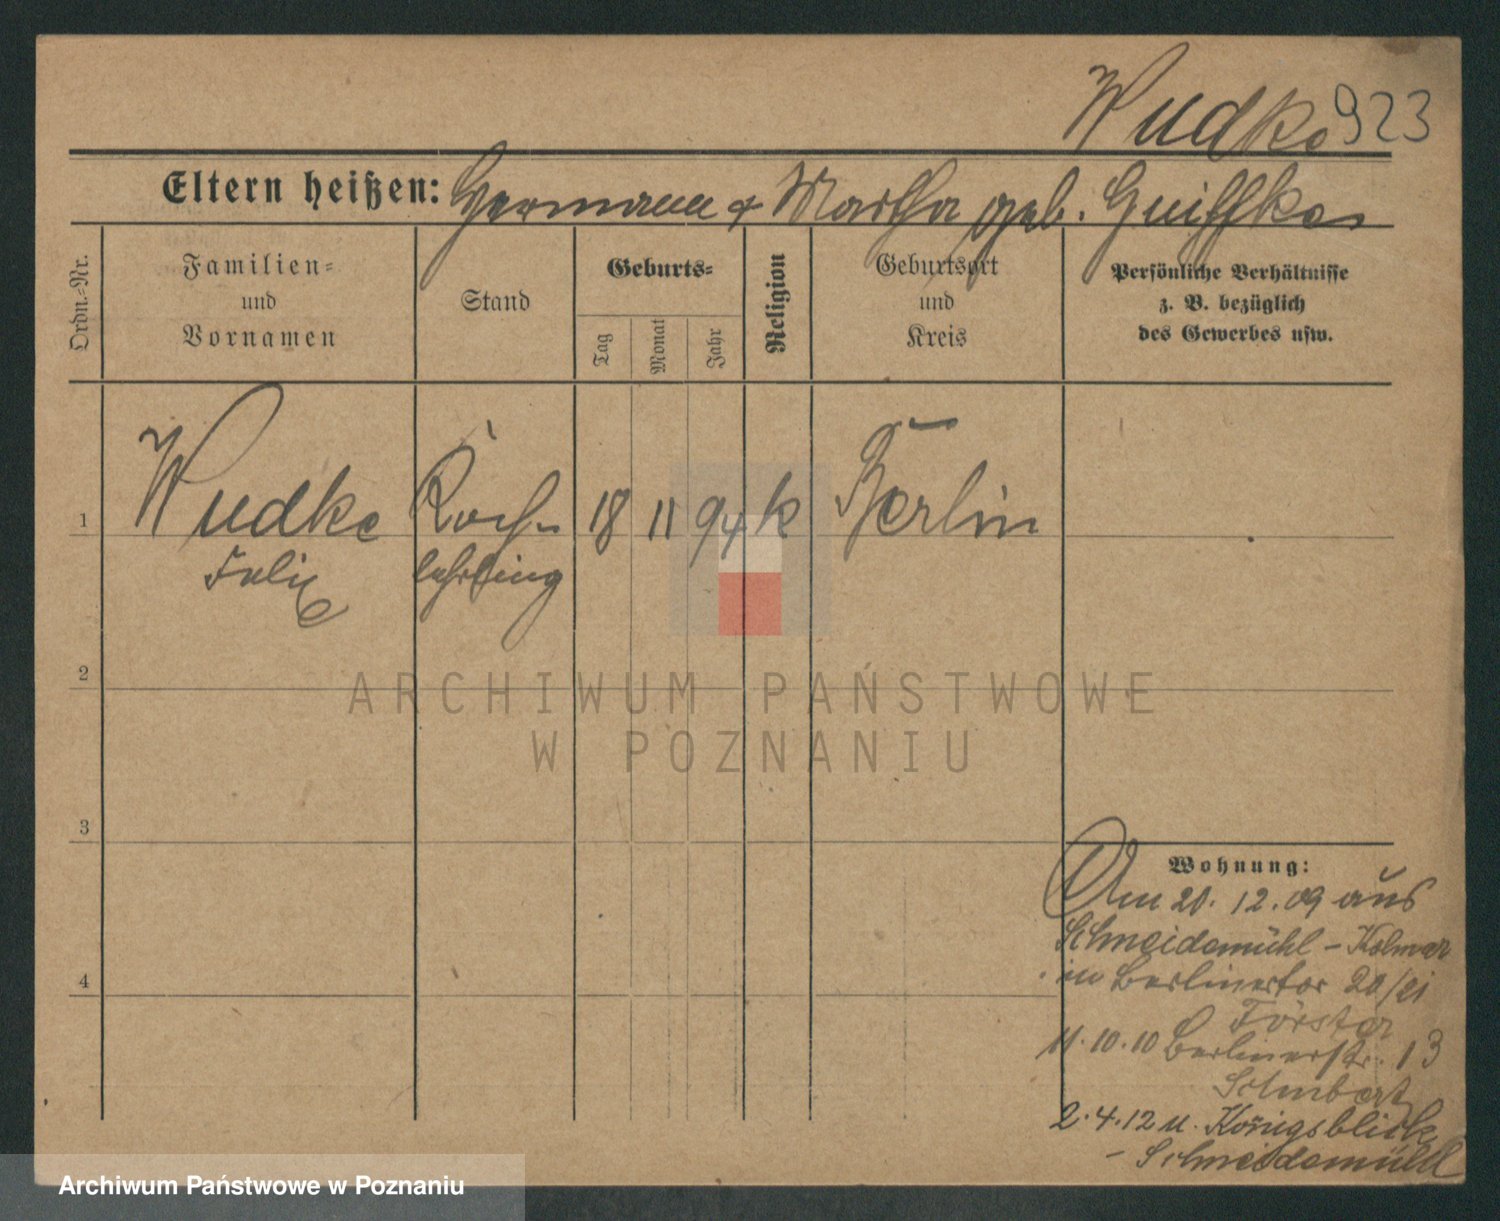 Wudke 923
Eltern heißen: Hermann & Martha geb. Gniffke
Ordn.-Nr.
Familien-
und
Vornamen
Stand
Geburts-
Tag
Monat
Jahr
Religion
Geburtsort
und
Kreis
Persönliche Verhältnisse
z. B. bezüglich
des Gewerbes usw.
1
Wudke Koch- 18 11 94 k Berlin
Felix lehrling
2
3
4
Wohnung:
Am 20. 12. 09 aus
Schneidemühl - Kolmar
in Berlinertor 20/
Förster
11. 10. 10 Berlinerstr. 13
Schubert
2. 4. 12 n. Königsblick
- Schneidemühl
ARCHIWUM PAŃSTWOWE
W POZNANIU
Archiwum Państwowe w Poznaniu